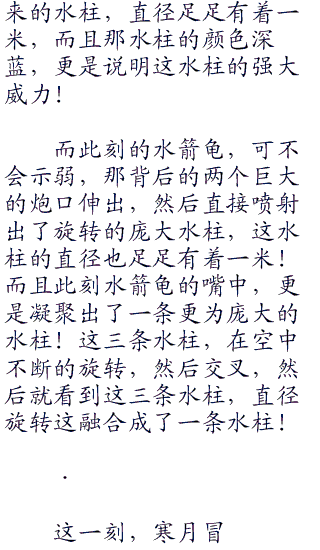 来的水柱，直径足足有着一
米，而且那水柱的颜色深
蓝，更是说明这水柱的强大
威力！
而此刻的水箭龟，可不
会示弱，那背后的两个巨大
的炮口伸出，然后直接喷射
出了旋转的庞大水柱，这水
柱的直径也足足有着一米！
而且此刻水箭龟的嘴中，更
是凝聚出了一条更为庞大的
水柱！这三条水柱，在空中
不断的旋转，然后交叉，然
后就看到这三条水柱，直径
旋转这融合成了一条水柱！
.
这一刻，寒月冒